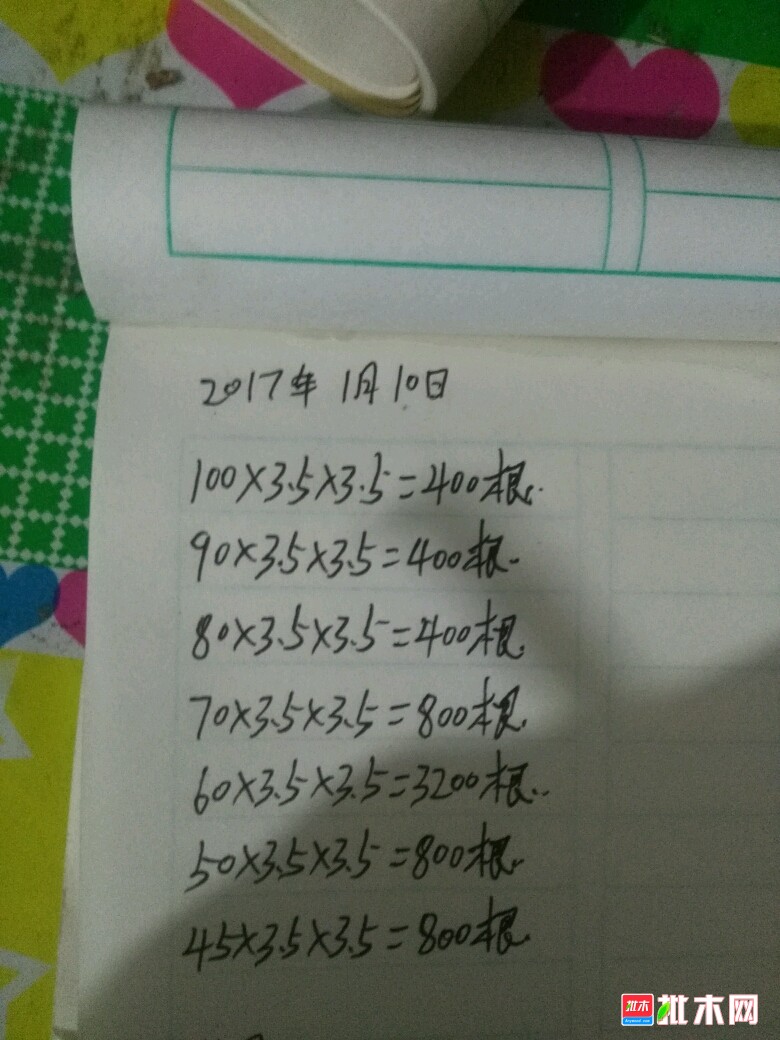 2017年 1月10日
100×3.5×3.5=400根.
90×3.5×3.5=400根.
80×3.5×3.5=400根.
70×3.5×3.5=800根.
60×3.5×3.5=3200根..
50×3.5×3.5=800根.
45×3.5×3.5=800根.
批木 批木网